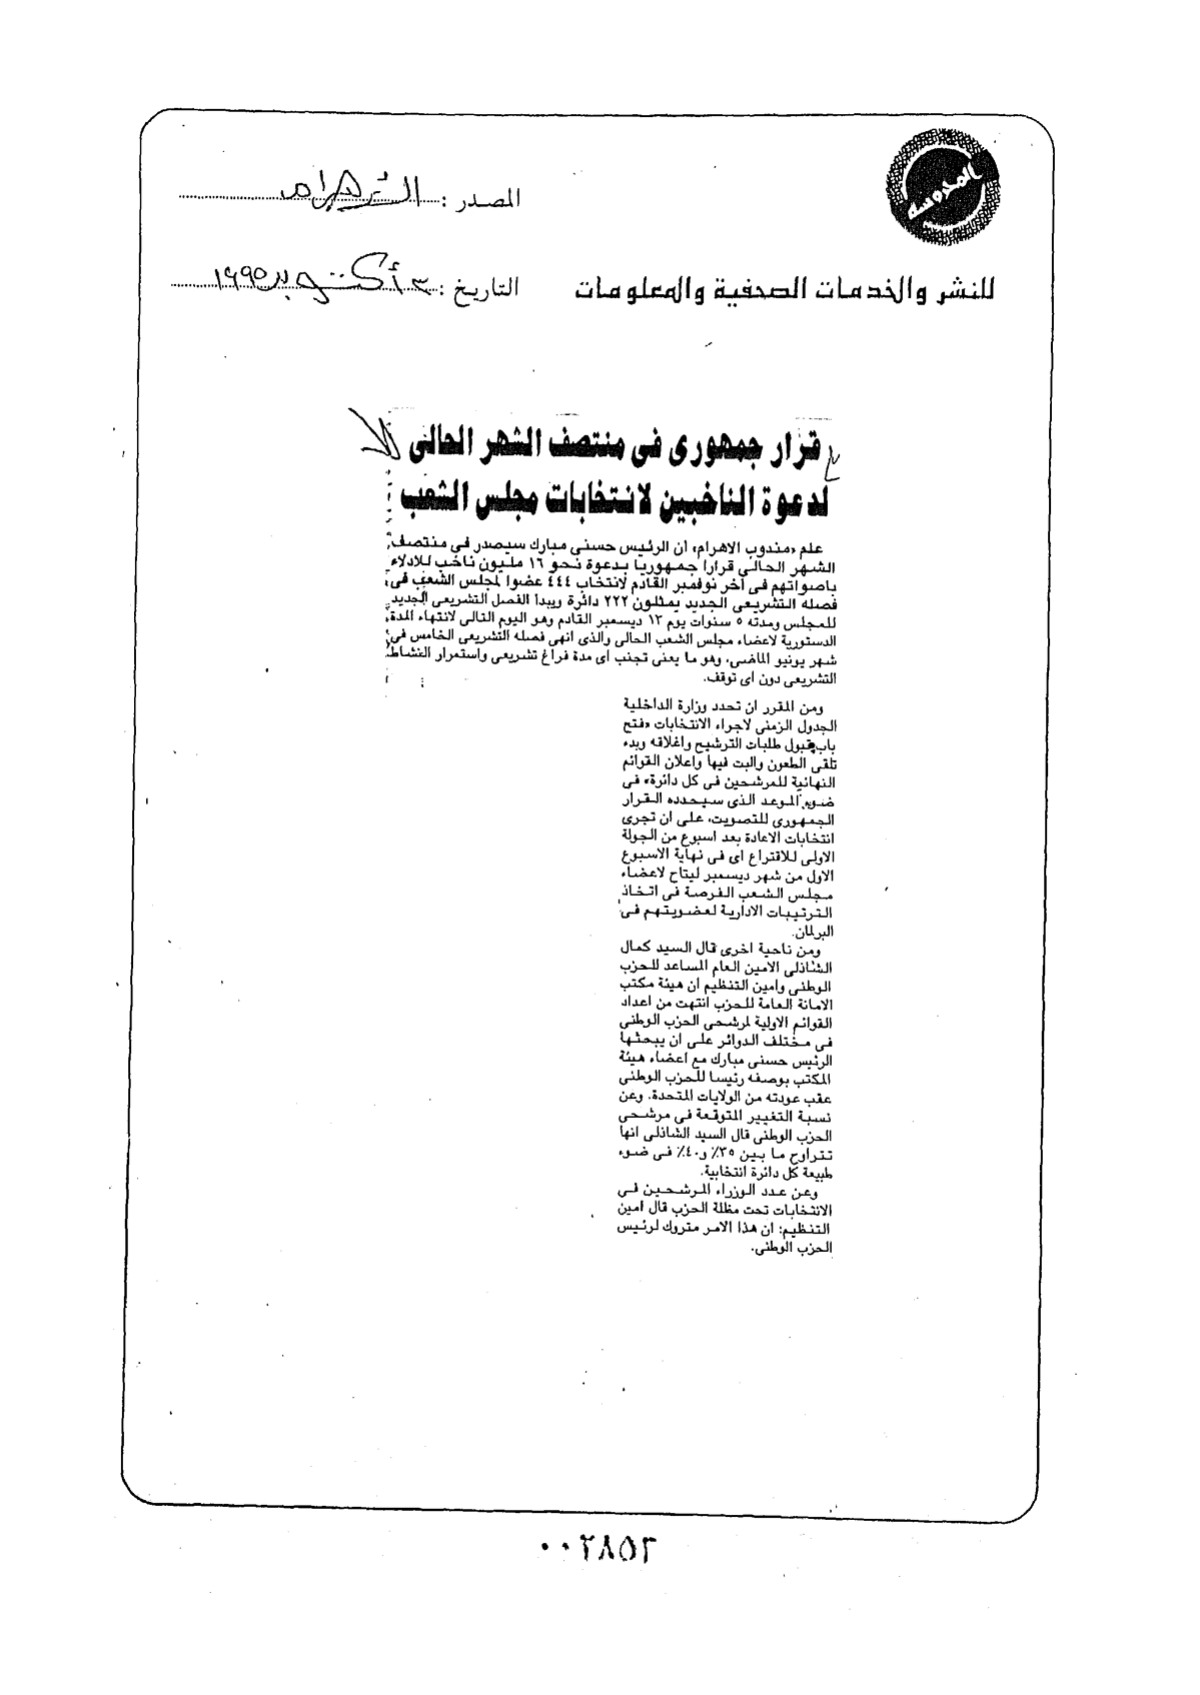 المحروسة
المصدر : الأهرام
للنشر والخدمات الصحفية والمعلومات
التاريخ : ٣ أكتوبر ١٩٩٥
قرار جمهورى فى منتصف الشهر الحالى
لدعوة الناخبين لانتخابات مجلس الشعب
علم «مندوب الاهرام» أن الرئيس حسنى مبارك سيصدر فى منتصف
الشهر الحالى قرارا جمهوريا بدعوة نحو ١٦ مليون ناخب للادلاء
باصواتهم فى آخر نوفمبر القادم لانتخاب ٤٤٤ عضوا لمجلس الشعب فى
فصله التشريعى الجديد يمثلون ٢٢٢ دائرة ويبدأ الفصل التشريعى الجديد
للمجلس ومدته ٥ سنوات يوم ١٣ ديسمبر القادم وهو اليوم التالى لانتهاء المدة
الدستورية لاعضاء مجلس الشعب الحالى والذى انهى فصله التشريعى الخامس فى
شهر يونيو الماضى، وهو ما يعنى تجنب اى مدة فراغ تشريعى واستمرار النشاط
التشريعى دون اى توقف.
ومن المقرر ان تحدد وزارة الداخلية
الجدول الزمنى لاجراء الانتخابات «فتح
باب قبول طلبات الترشيح واغلاقه وبدء
تلقى الطعون والبت فيها واعلان القوائم
النهائية للمرشحين فى كل دائرة» فى
ضوء الموعد الذى سيحدده القرار
الجمهورى للتصويت، على ان تجرى
انتخابات الاعادة بعد اسبوع من الجولة
الاولى للاقتراع اى فى نهاية الاسبوع
الاول من شهر ديسمبر ليتاح لاعضاء
مجلس الشعب الفرصة فى اتخاذ
الترتيبات الادارية لعضويتهم فى
البرلمان.
ومن ناحية اخرى قال السيد كمال
الشاذلى الامين العام المساعد للحزب
الوطنى وامين التنظيم ان هيئة مكتب
الامانة العامة للحزب انتهت من اعداد
القوائم الاولية لمرشحى الحزب الوطنى
فى مختلف الدوائر على ان يبحثها
الرئيس حسنى مبارك مع اعضاء هيئة
المكتب بوصفه رئيسا للحزب الوطنى
عقب عودته من الولايات المتحدة. وعن
نسبة التغيير المتوقعة فى مرشحى
الحزب الوطنى قال السيد الشاذلى انها
تتراوح ما بين ٣٥٪ و٤٠٪ فى ضوء
طبيعة كل دائرة انتخابية.
وعن عدد الوزراء المرشحين فى
الانتخابات تحت مظلة الحزب قال امين
التنظيم: ان هذا الامر متروك لرئيس
الحزب الوطنى.
٠٠٢٨٥٢